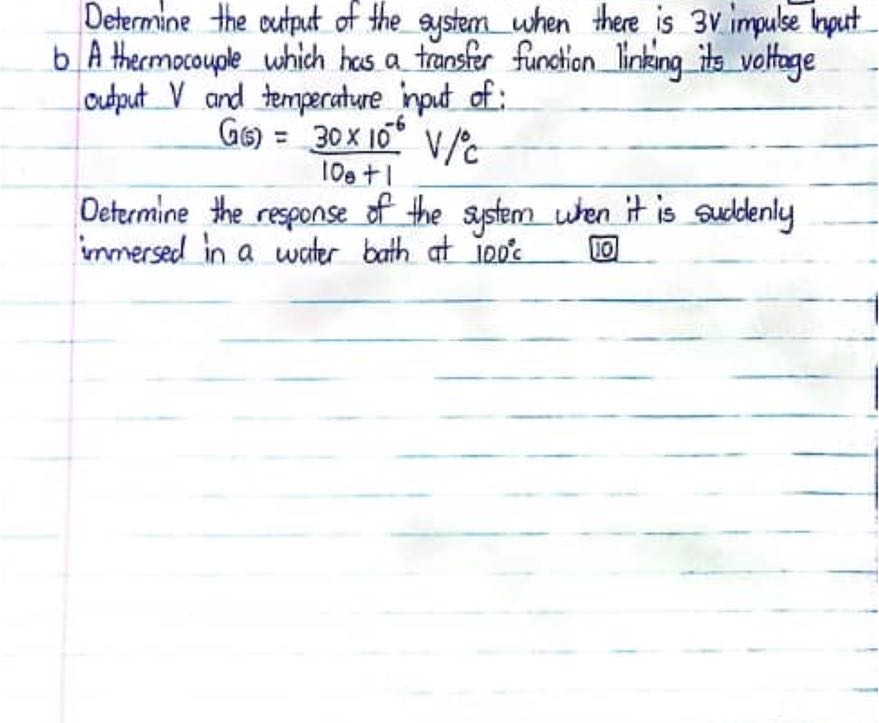 Determine the output of the system when there is 3V impulse Input
b A thermocouple which has a transfer function linking its voltage
output V and temperature input of :
G(s) = 30 x 10⁻⁶ V/°c
10s + 1
Determine the response of the system when it is suddenly
immersed in a water bath at 100°c 10